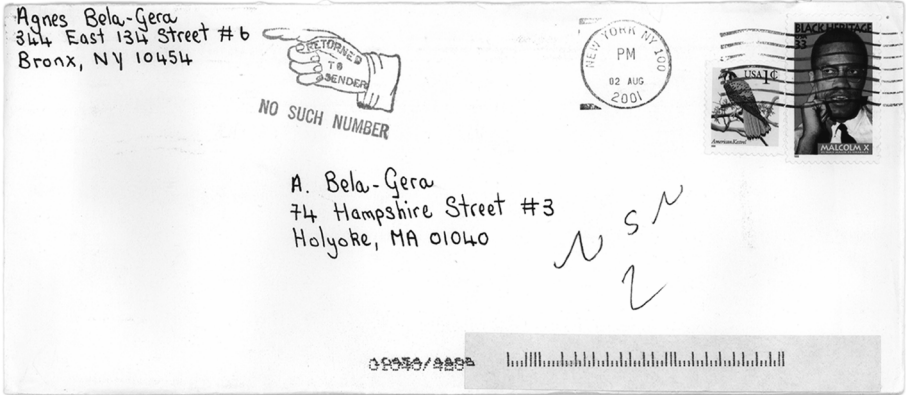 Agnes Bela-Gera
344 East 134 Street #6
Bronx, NY 10454
RETURNED
TO
SENDER
NO SUCH NUMBER
NEW YORK NY 100
PM
02 AUG
2001
USA 1¢
American Kestrel
BLACK HERITAGE
33
MALCOLM X
A. Bela-Gera
74 Hampshire Street #3
Holyoke, MA 01040
N S N
2